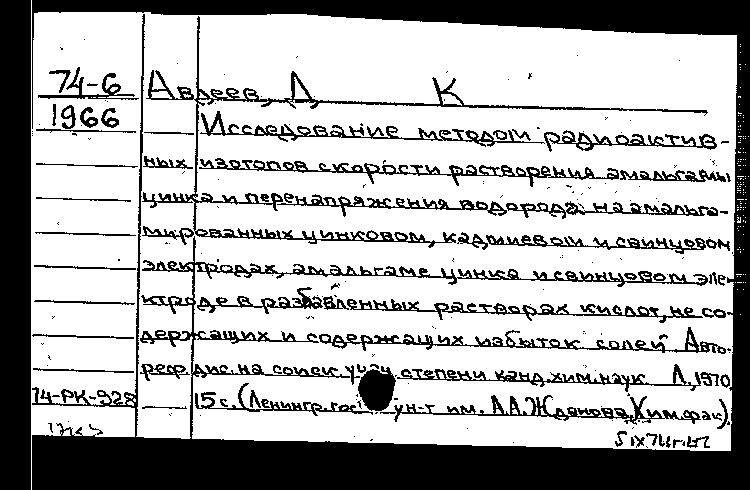 74-6 Авдеев, Д К
1966 Исследование методом радиоактив-
ных изотопов скорости растворения амальгамы
цинка и перенапряжения водорода на амальга-
мированных цинковом, кадмиевом и свинцовом
электродах, амальгаме цинка и свинцовом эле-
ктроде в разбавленных растворах кислот, не со-
держащих и содержащих избыток солей. Авто-
реф. дис. на соиск. степени канд. хим. наук Л, 1970
74-РК-928 15 с. (Ленингр. гос. ун-т им. А.А. Жданова. Хим. фак).